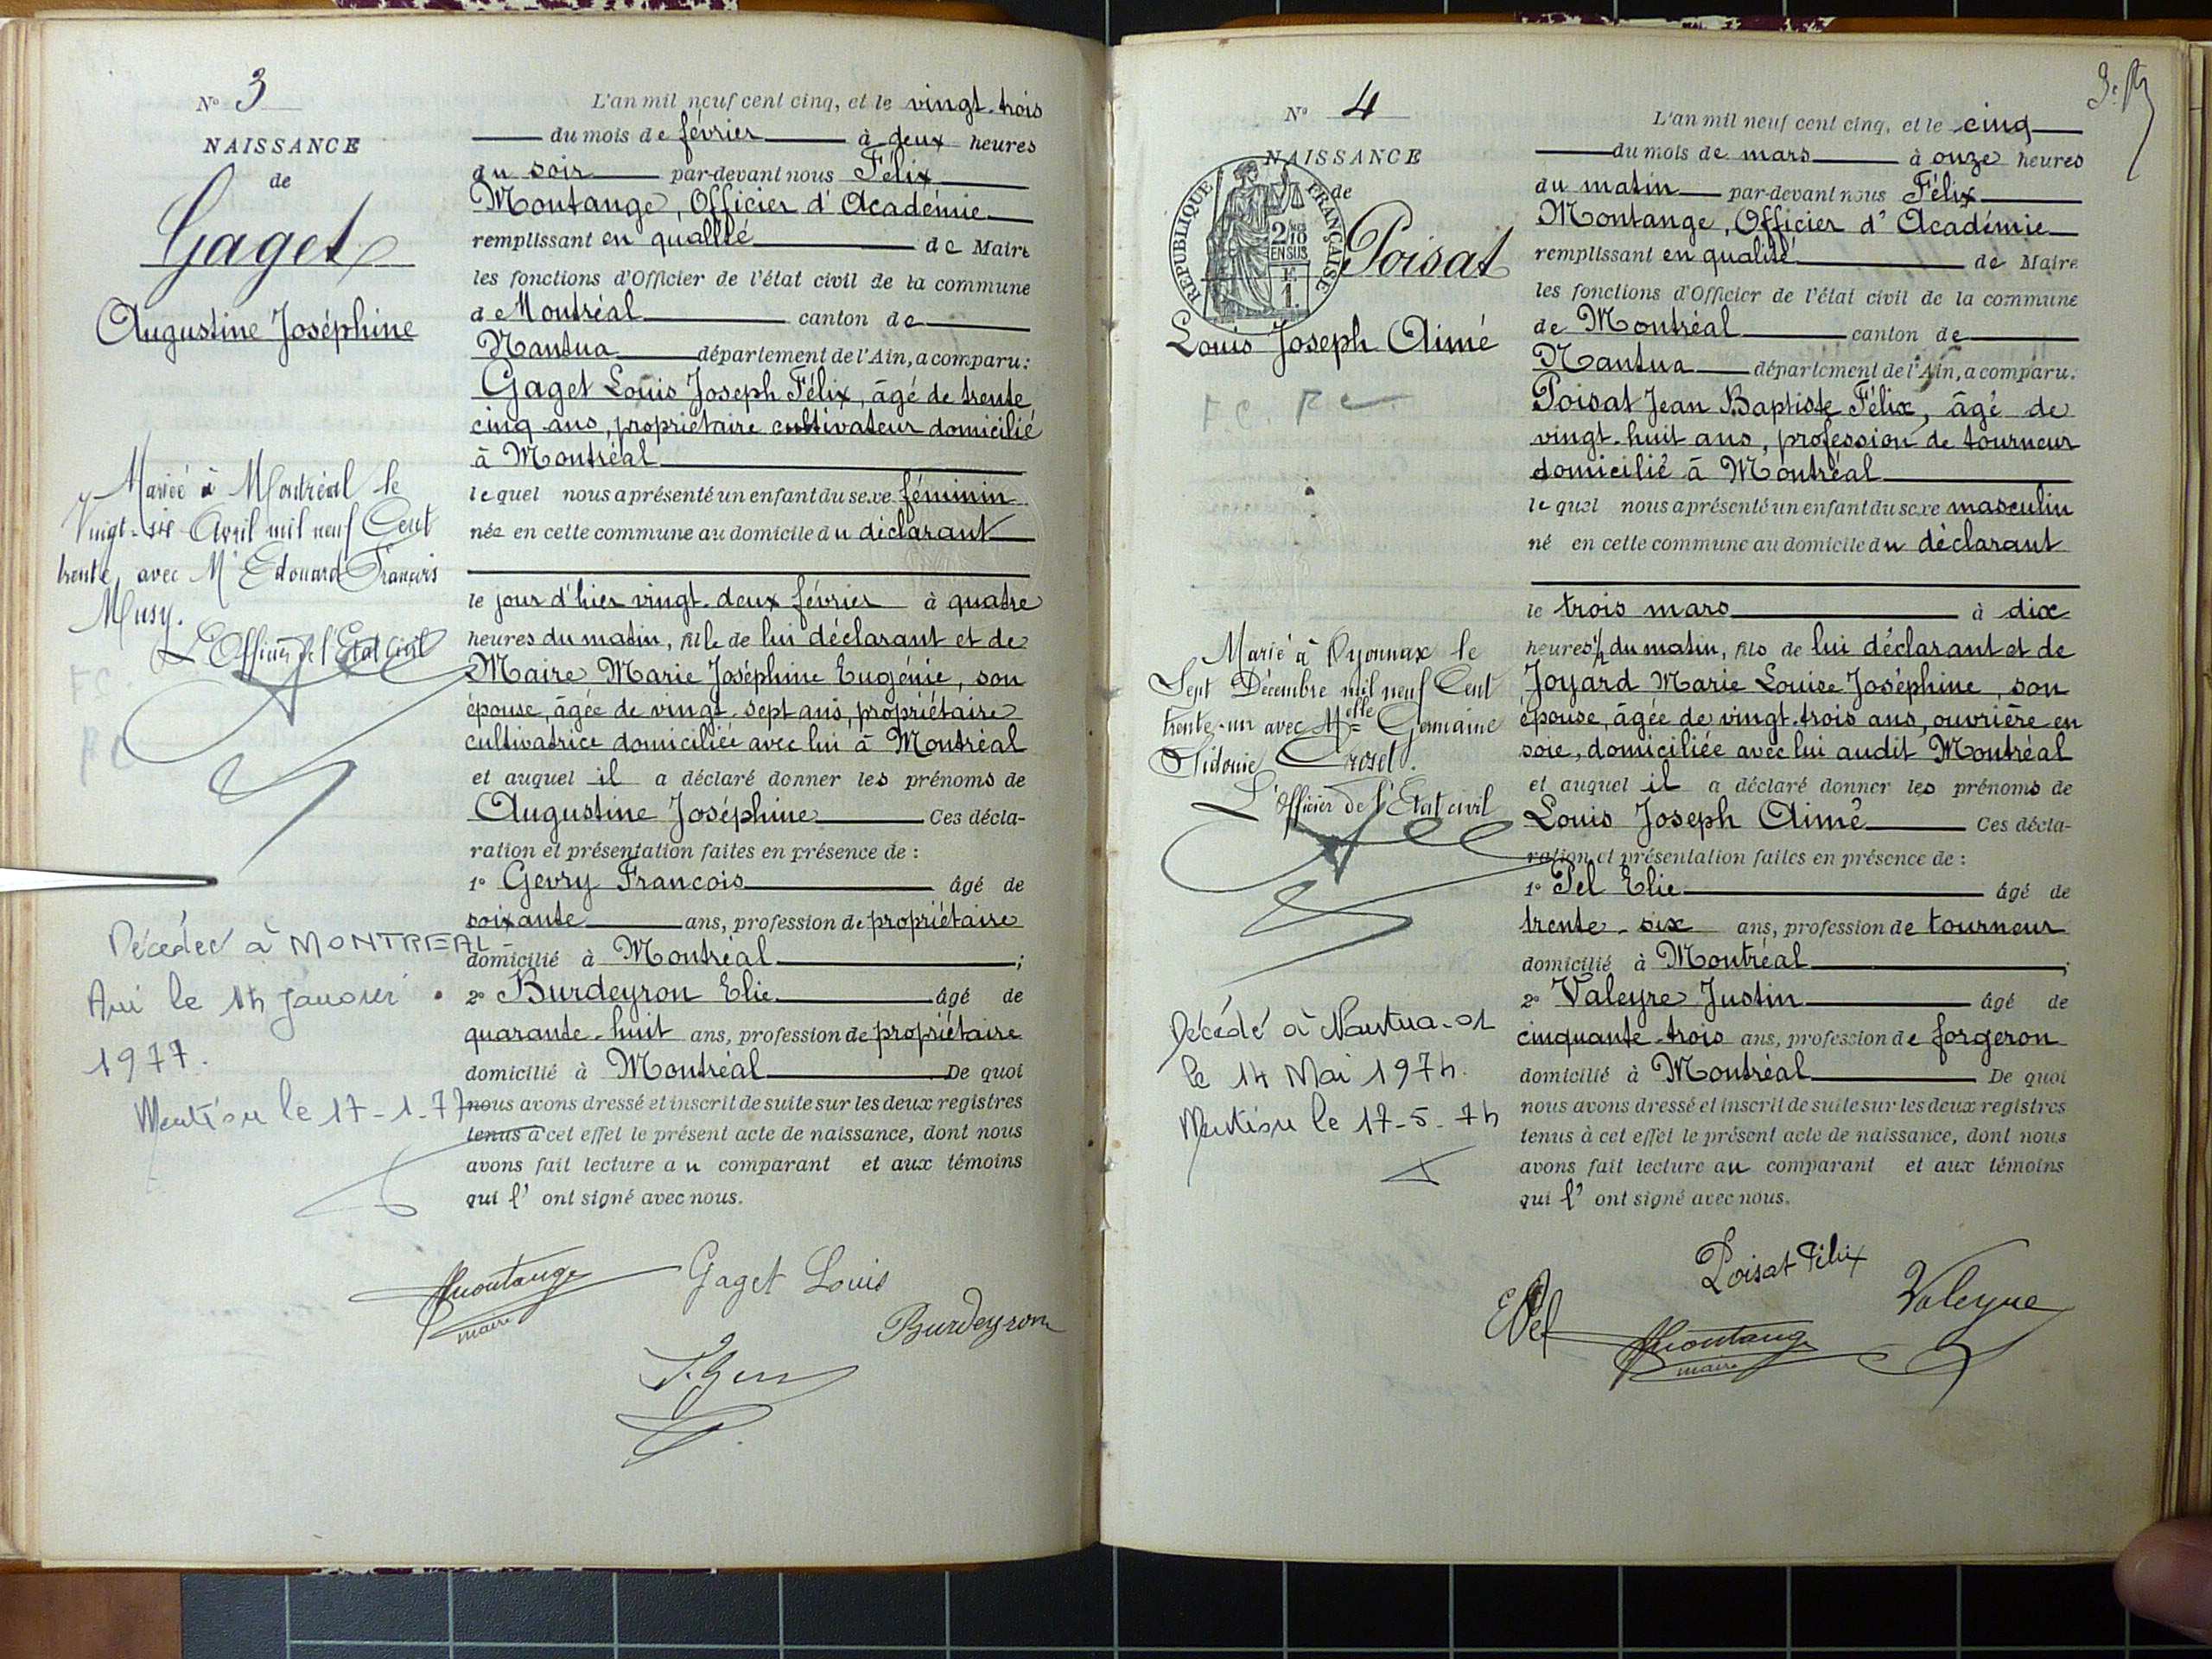 N° 3
NAISSANCE
de
Gaget
Augustine Joséphine
Mariée à Montréal le
Vingt-six Avril mil neuf Cent
trente, avec Mr Edouard François
Musy.
L'Officier de l'Etat Civil
Décédée à MONTREAL
Ain le 14 janvier
1977.
Mention le 17-1-77
L'an mil neuf cent cinq, et le vingt-trois
du mois de février à deux heures
du soir par-devant nous Félix
Montange, Officier d'Académie
remplissant en qualité de Maire
les fonctions d'Officier de l'état civil de la commune
de Montréal canton de
Nantua département de l'Ain, a comparu:
Gaget Louis Joseph Félix, âgé de trente
cinq ans, propriétaire cultivateur domicilié
à Montréal
lequel nous a présenté un enfant du sexe féminin
née en cette commune au domicile du déclarant
le jour d'hier vingt-deux février à quatre
heures du matin, fille de lui déclarant et de
Maire Marie Joséphine Eugénie, son
épouse, âgée de vingt-sept ans, propriétaire
cultivatrice domiciliée avec lui à Montréal
et auquel il a déclaré donner les prénoms de
Augustine Joséphine Ces décla-
ration et présentation faites en présence de :
1° Gevry Francois âgé de
soixante ans, profession de propriétaire
domicilié à Montréal ;
2° Burdeyron Elie âgé de
quarante-huit ans, profession de propriétaire
domicilié à Montréal De quoi
nous avons dressé et inscrit de suite sur les deux registres
tenus à cet effet le présent acte de naissance, dont nous
avons fait lecture au comparant et aux témoins
qui l' ont signé avec nous.
Montange
maire
Gaget Louis
Burdeyron
N° 4
NAISSANCE
de
RÉPUBLIQUE FRANÇAISE
2/10
EN SUS
F
1.
Poisat
Louis Joseph Aimé
Marié à Oyonnax le
Sept Décembre mil neuf Cent
trente-un avec Melle Germaine
Sidonie Crozet.
L'Officier de l'Etat civil
Décédé à Nantua-01
le 14 Mai 1974.
Mention le 17-5-74
L'an mil neuf cent cinq, et le cinq
du mois de mars à onze heures
du matin par-devant nous Félix
Montange, Officier d'Académie
remplissant en qualité de Maire
les fonctions d'Officier de l'état civil de la commune
de Montréal canton de
Nantua département de l'Ain, a comparu.
Poisat Jean Baptiste Félix, âgé de
vingt-huit ans, profession de tourneur
domicilié à Montréal
lequel nous a présenté un enfant du sexe masculin
né en cette commune au domicile du déclarant
le trois mars à dix
heures ½ du matin, fils de lui déclarant et de
Joyard Marie Louise Joséphine, son
épouse, âgée de vingt-trois ans, ouvrière en
soie, domiciliée avec lui audit Montréal
et auquel il a déclaré donner les prénoms de
Louis Joseph Aimé Ces décla-
ration et présentation faites en présence de :
1° Pel Elie âgé de
trente-six ans, profession de tourneur
domicilié à Montréal ;
2° Valeyre Justin âgé de
cinquante-trois ans, profession de forgeron
domicilié à Montréal De quoi
nous avons dressé et inscrit de suite sur les deux registres
tenus à cet effet le présent acte de naissance, dont nous
avons fait lecture au comparant et aux témoins
qui l' ont signé avec nous.
Poisat Félix
E Pel
Montange
maire
Valeyre